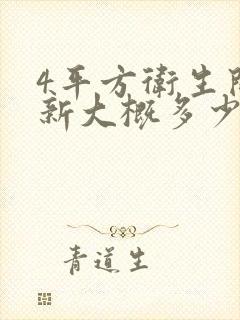 4平方衛生
新大概多少
青道生